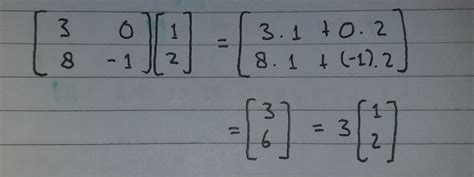 [3 0; 8 -1][1; 2] = [3.1 + 0.2; 8.1 + (-1).2]
= [3; 6] = 3[1; 2]